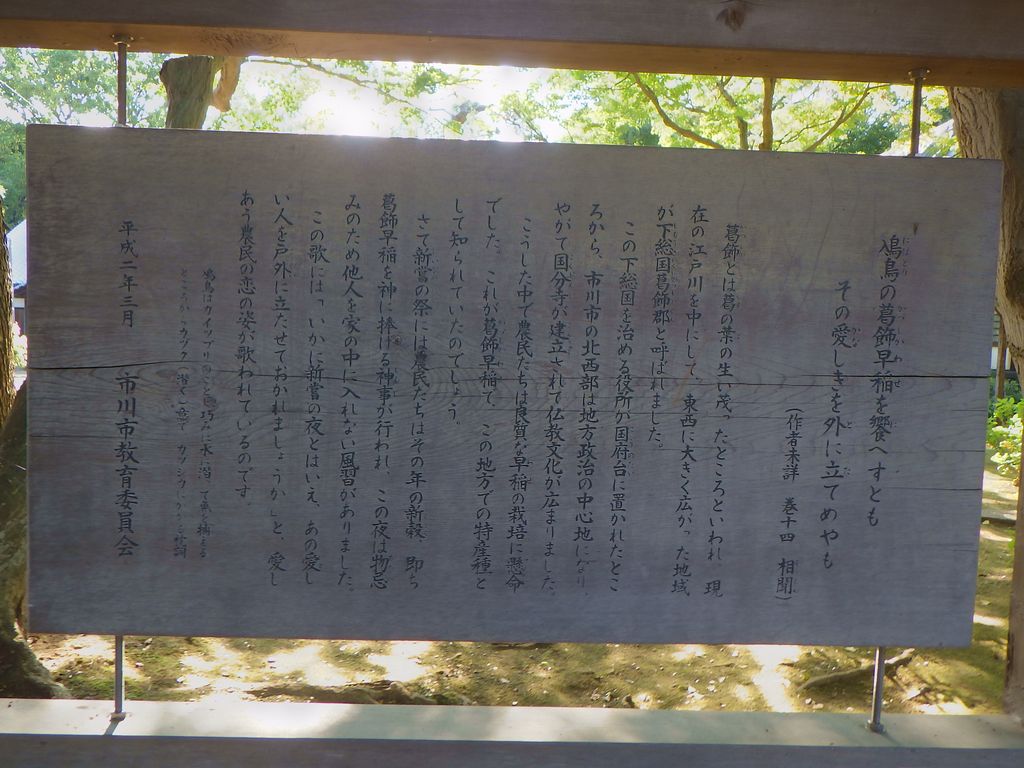 鳰鳥の葛飾早稲を饗へすとも
その愛しきを外に立てめやも
(作者未詳 巻十四 相聞)
葛飾とは葛の葉の生い茂ったところといわれ、現
在の江戸川を中にして、東西に大きく広がった地域
が下総国葛飾郡と呼ばれました。
この下総国を治める役所が国府台に置かれたとこ
ろから、市川市の北西部は地方政治の中心地になり、
やがて国分寺が建立されて仏教文化が広まりました。
こうした中で農民たちは良質な早稲の栽培に懸命
でした。これが葛飾早稲で、この地方での特産種と
して知られていたのでしょう。
さて新嘗の祭には農民たちはその年の新穀、即ち
葛飾早稲を神に捧げる神事が行われ、この夜は物忌
みのため他人を家の中に入れない風習がありました。
この歌には「いかに新嘗の夜とはいえ、あの愛し
い人を戸外に立たせておかれましょうか」と、愛し
あう農民の恋の姿が歌われているのです。
鳰鳥はカイツブリのこと巧みに水に潜って魚を捕える
ところからカヅク(潜く)意で カヅシカにかかる枕詞
平成二年三月 市川市教育委員会